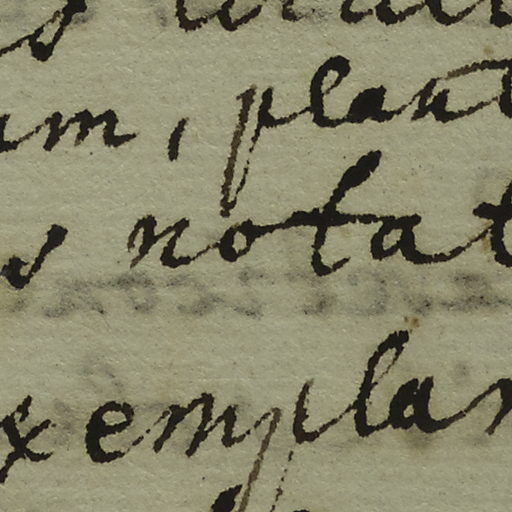 um, plant
s notat
exemplar